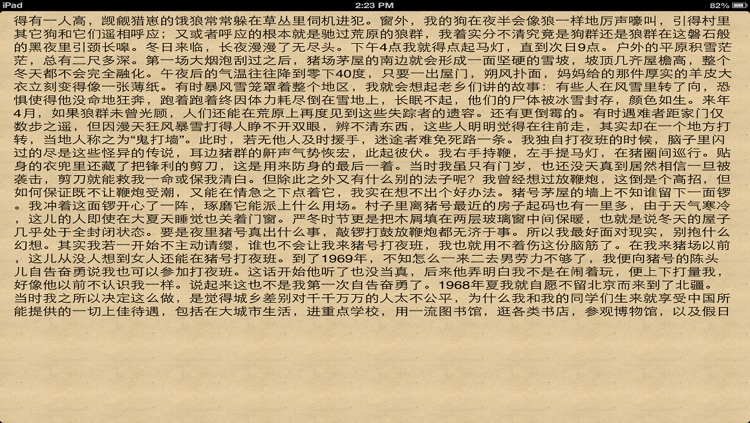 iPad
2:23 PM
82%
得有一人高，觊觎猎崽的饿狼常常躲在草丛里伺机进犯。窗外，我的狗在夜半会像狼一样地厉声嚎叫，引得村里
其它狗和它们遥相呼应；又或者呼应的根本就是驰过荒原的狼群，我着实分不清究竟是狗群还是狼群在这磐石般
的黑夜里引颈长嗥。冬日来临，长夜漫漫了无尽头。下午4点我就得点起马灯，直到次日9点。户外的平原积雪茫
茫，总有二尺多深。第一场大烟泡刮过之后，猪场茅屋的南边就会形成一面坚硬的雪坡，坡顶几齐屋檐高，整个
冬天都不会完全融化。午夜后的气温往往降到零下40度，只要一出屋门，朔风扑面，妈妈给的那件厚实的羊皮大
衣立刻变得像一张薄纸。有时暴风雪笼罩着整个地区，我就会想起老乡们讲的故事：有些人在风雪里转了向，恐
惧使得他没命地狂奔，跑着跑着终因体力耗尽倒在雪地上，长眠不起，他们的尸体被冰雪封存，颜色如生。来年
4月，如果狼群未曾光顾，人们还能在荒原上再度见到这些失踪者的遗容。还有更倒霉的。有时遇难者距家门仅
数步之遥，但因漫天狂风暴雪打得人睁不开双眼，辨不清东西，这些人明明觉得在往前走，其实却在一个地方打
转，当地人称之为“鬼打墙”。此时，若无他人及时援手，迷途者难免死路一条。我独自打夜班的时候，脑子里闪
过的尽是这些怪异的传说，耳边猪群的鼾声气势恢宏，此起彼伏。我右手持鞭，左手提马灯，在猪圈间巡行。贴
身的衣兜里还藏了把锋利的剪刀，这是用来防身的最后一着。当时我虽只有几岁，也还没天真到居然相信一旦被
袭击，剪刀就能救我一命或保我清白。但除此之外又有什么别的法子呢？我曾经想过放鞭炮，这倒是个高招，但
如何保证既不让鞭炮受潮，又能在情急之下点着它，我实在想不出个好办法。猪号茅屋的墙上不知谁留下一面锣
。我冲着这面锣开心了一阵，琢磨它能派上什么用场。村子里离猪号最近的房子起码也有一里多，由于天气寒冷
，这儿的人即使在大夏天睡觉也关着门窗。严冬时节更是把木屑填在两层玻璃窗中间保暖，也就是说冬天的屋子
几乎处于全封闭状态。要是夜里猪号真出什么事，敲锣打鼓放鞭炮都无济于事。所以我最好面对现实，别抱什么
幻想。其实我若一开始不主动请缨，谁也不会让我来猪号打夜班，我也就用不着伤这份脑筋了。在我来猪场以前
，这儿从没人想到女人还能在猪号打夜班。到了1969年，不知怎么一来二去男劳力不够了，我便向猪号的陈头
儿自告奋勇说我也可以参加打夜班。这话开始他听了也没当真，后来他弄明白我不是在闹着玩，便上下打量我，
好像他以前不认识我一样。说起来这也不是我第一次自告奋勇了。1968年夏我就自愿不留北京而来到了北疆。
当时我之所以决定这么做，是觉得城乡差别对千千万万的人太不公平，为什么我和我的同学们生来就享受中国所
能提供的一切上佳待遇，包括在大城市生活，进重点学校，用一流图书馆，逛各类书店，参观博物馆，以及假日